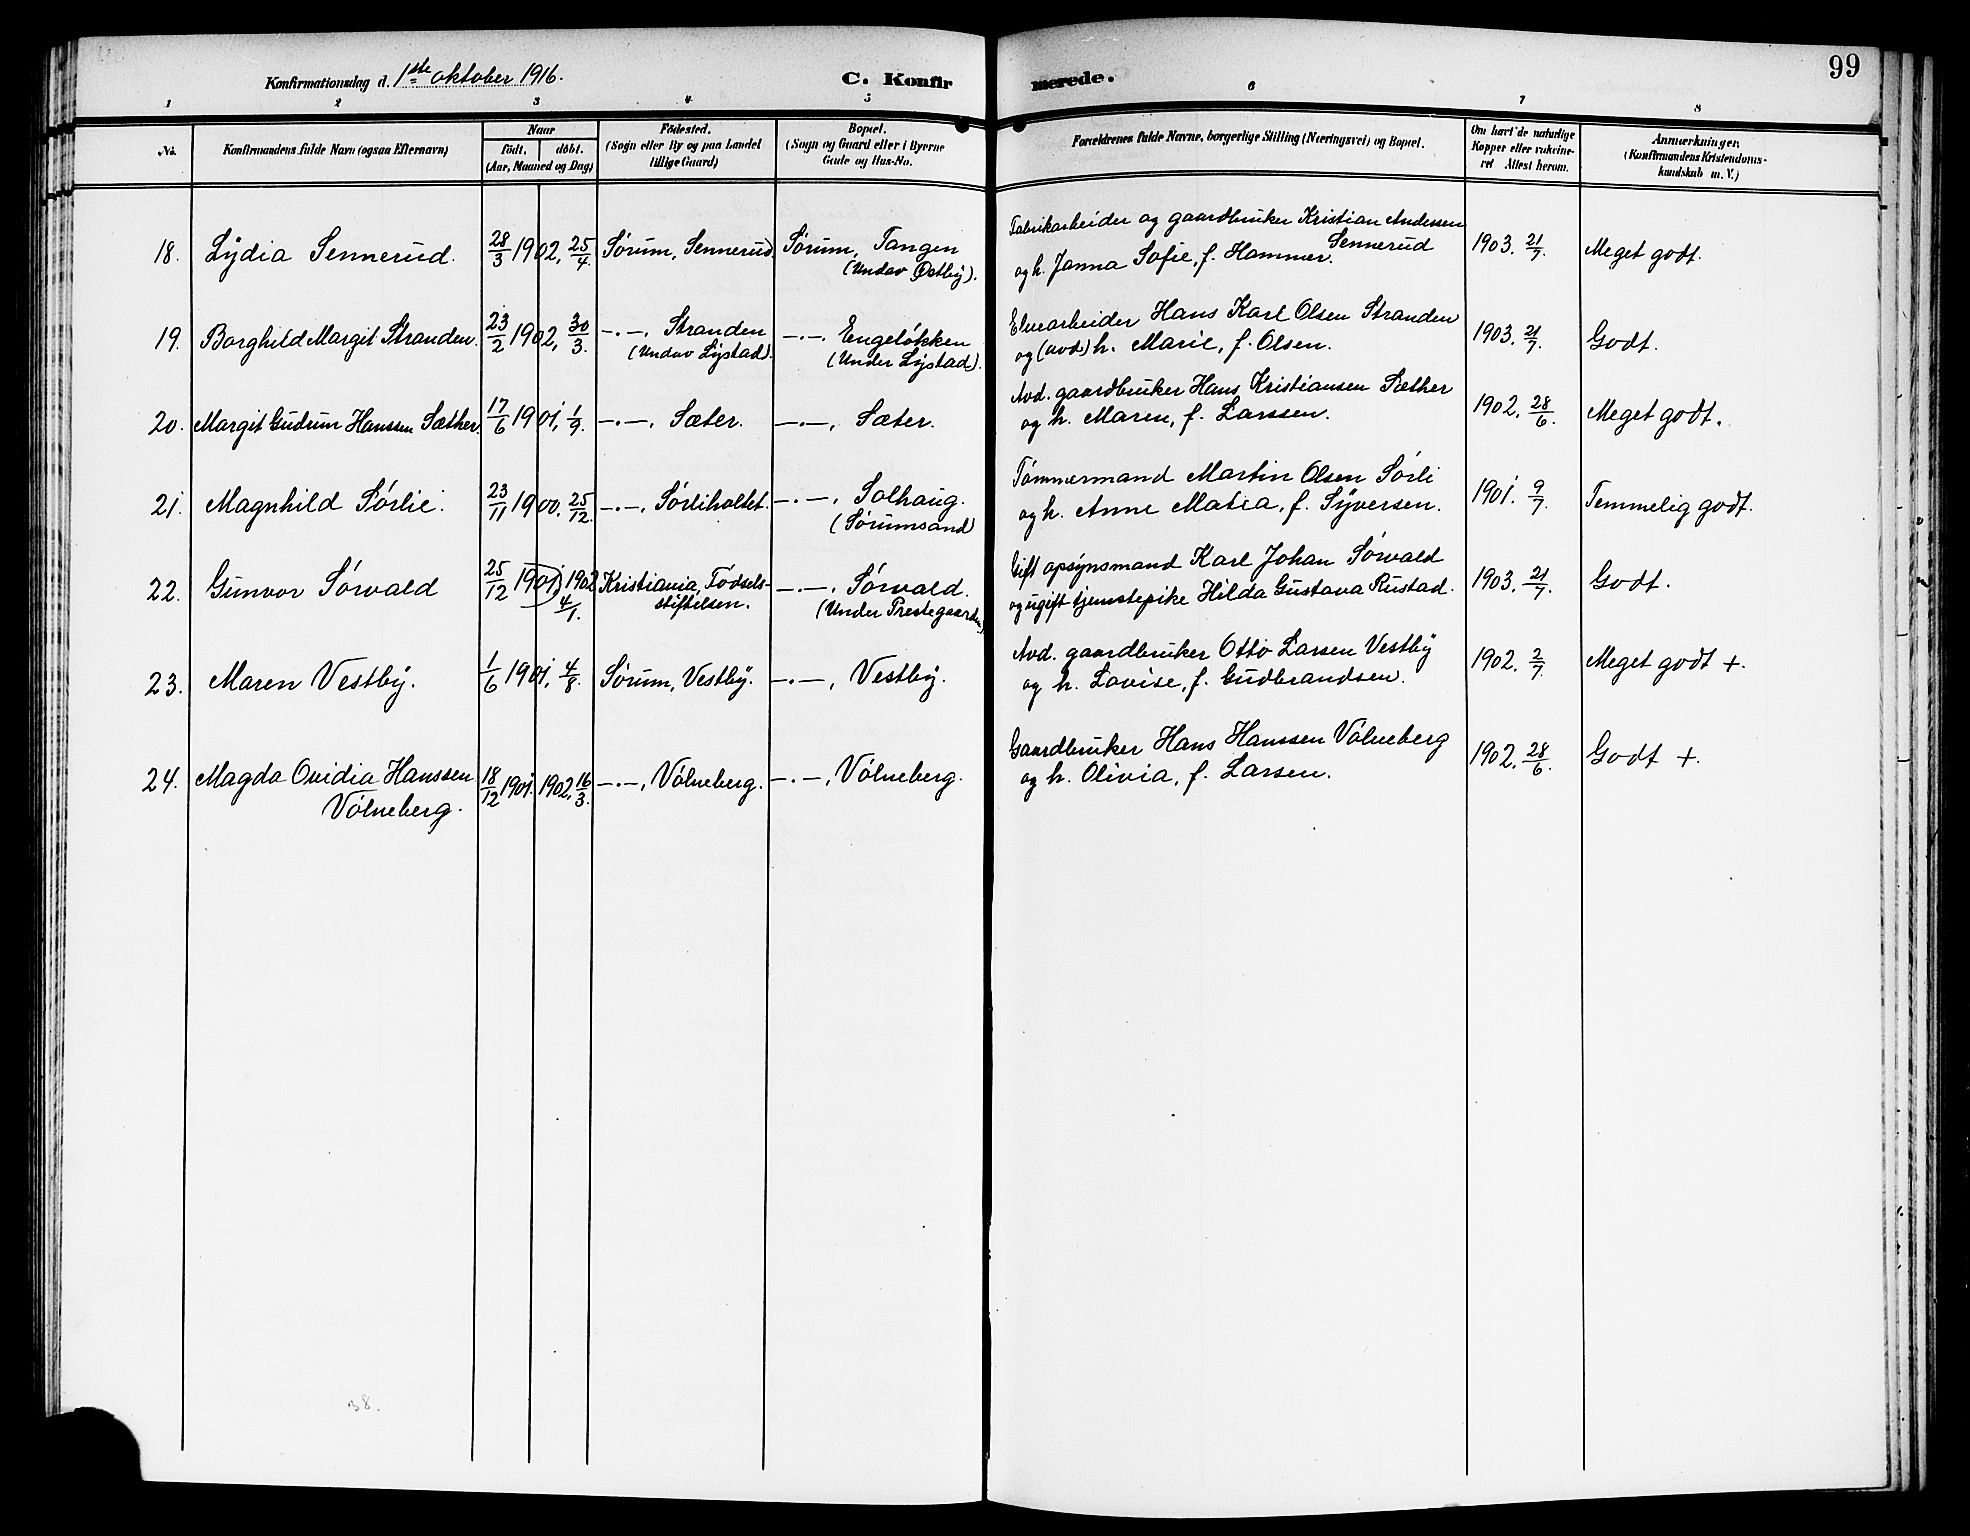 99
Konfirmationsdag d. 1ste oktober 1916.
C. Konfir merede.
1 2 3 4 5 6 7 8
No.
Konfirmandens fulde Navn (ogsaa Efternavn)
Naar
født. døbt.
(Aar, Maaned og Dag)
Fødested.
(Sogn eller By og paa Landet
tillige Gaard)
Bopæl.
(Sogn og Gaard eller i Byerne
Gade og Hus-No.
Forældrenes fulde Navne, borgerlige Stilling (Næringsvei) og Bopæl.
Om havt de naturlige
Kopper eller vakcine-
ret Attest herom.
Anmærkninger.
(Konfirmandens Kristendoms-
kundskab m. V.)
18. Lydia Sennerud. 28/3 1902, 25/4. Sørum, Sennerud Sørum, Tangen
(Undav Østby).
Fabrikarbeider og gaardbruker Kristian Andersen
Sennerud
og h. Janna Sofie, f. Hammer.
1903. 21/7. Meget godt.
19. Borghild Margit Stranden. 23/2 1902, 30/3. -·-, Stranden
(Undav Lystad).
-·-, Engeløkken
(Under Lystad).
Elvearbeider Hans Karl Olsen Stranden
og (avd.) h. Marie, f. Olsen.
1903. 21/7. Godt.
20. Margit Gudrun Hanssen Sæther. 17/6 1901, 1/9. -·-, Sæter. -·-, Sæter.
Avd. gaardbruker Hans Kristiansen Sæther
og h. Maren, f. Larssen.
1902. 28/6. Meget godt.
21. Magnhild Sørlie. 23/11 1900. 25/12. -·-, Sørliholtet. -·-, Solhaug.
(Sørumsand)
Tømmermand Martin Olsen Sørli
og h. Anne Matea, f. Syversen.
1901. 9/7. Temmelig godt.
22. Gunvor Sørvald 25/12 1901, 1902 4/1. Kristiania, Fødsels-
stiftelsen.
-·-, Sørvald.
(Under Prestegaarden)
Gift opsynsmand Karl Johan Sørvald
og ugift tjenestepike Hilda Gustava Rustad.
1903. 21/7. Godt.
23. Maren Vestby. 1/6 1901, 4/8. Sørum, Vestby. -·-, Vestby.
Avd. gaardbruker Otto Larsen Vestby
og h. Lovise, f. Gudbrandsen.
1902. 2/7. Meget godt +.
24. Magda Ovidia Hanssen
Vølneberg.
18/12 1901. 1902, 16/3. -·-, Vølneberg. -·-, Vølneberg.
Gaardbruker Hans Hanssen Vølneberg
og h. Olivia, f. Larsen.
1902. 28/6. Godt +.
38.